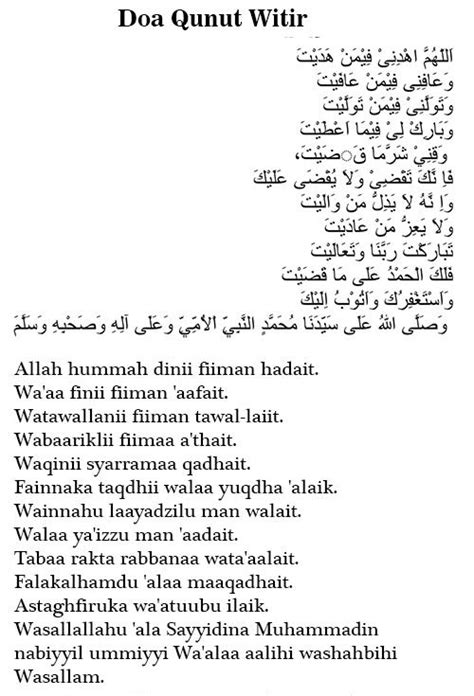 Doa Qunut Witir
اَللّٰهُمَّ اهْدِنِىْ فِيْمَنْ هَدَيْتَ
وَعَافِنِى فِيْمَنْ عَافَيْتَ
وَتَوَلَّنِىْ فِيْمَنْ تَوَلَّيْتَ
وَبَارِكْ لِىْ فِيْمَا اَعْطَيْتَ
وَقِنِيْ شَرَّمَا قَ◌ضَيْتَ،
فَاِ نَّكَ تَقْضِىْ وَلاَ يُقْضَى عَلَيْكَ
وَاِ نَّهُ لاَ يَذِلُّ مَنْ وَالَيْتَ
وَلاَ يَعِزُّ مَنْ عَادَيْتَ
تَبَارَكْتَ رَبَّنَا وَتَعَالَيْتَ
فَلَكَ الْحَمْدُ عَلَى مَا قَضَيْتَ
وَاَسْتَغْفِرُكَ وَاَتُوْبُ اِلَيْكَ
وَصَلَّى اللهُ عَلَى سَيِّدَنَا مُحَمَّدٍ النَّبِيِّ اْلأُمِّيِّ وَعَلَى آلِهِ وَصَحْبِهِ وَسَلَّمَ
Allah hummah dinii fiiman hadait.
Wa'aa finii fiiman 'aafait.
Watawallanii fiiman tawal-laiit.
Wabaariklii fiimaa a'thait.
Waqinii syarramaa qadhait.
Fainnaka taqdhii walaa yuqdha 'alaik.
Wainnahu laayadzilu man walait.
Walaa ya'izzu man 'aadait.
Tabaa rakta rabbanaa wata'aalait.
Falakalhamdu 'alaa maaqadhait.
Astaghfiruka wa'atuubu ilaik.
Wasallallahu 'ala Sayyidina Muhammadin
nabiyyil ummiyyi Wa'alaa aalihi washahbihi
Wasallam.